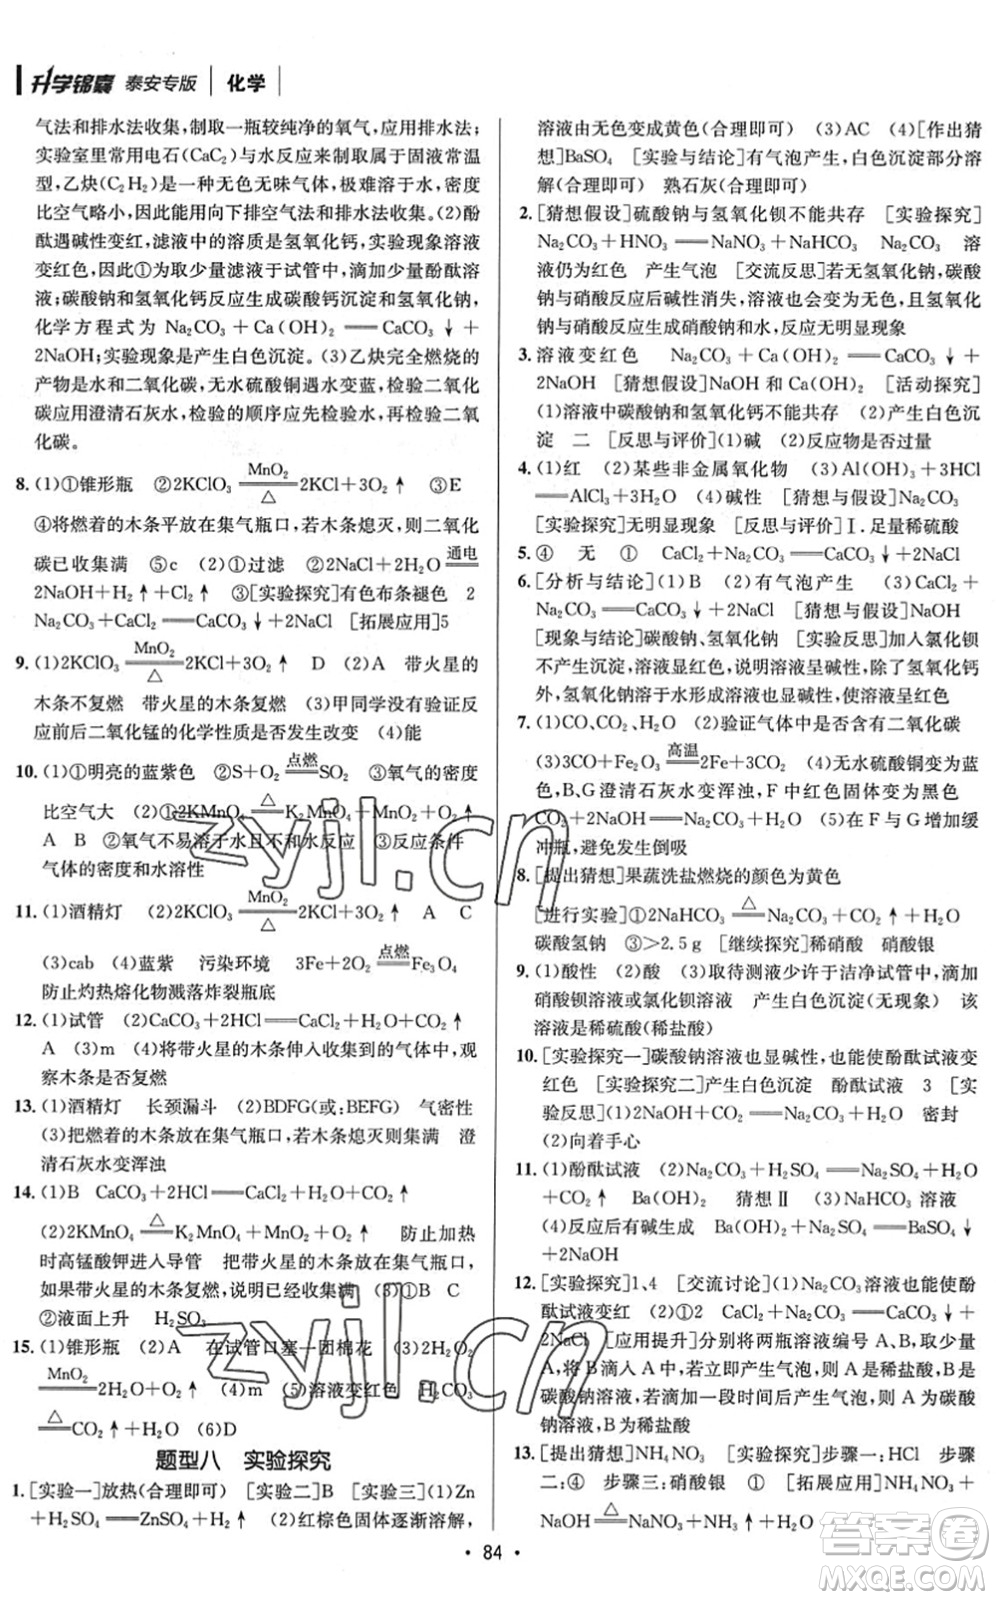 升学锦囊 泰安专版 化学
气法和排水法收集,制取一瓶较纯净的氧气,应用排水法;
实验室里常用电石(CaC₂)与水反应制取,属于固液常温
型,乙炔(C₂H₂)是一种无色无味气体,极难溶于水,密度
比空气略小,因此能用向下排空气法和排水法收集。(2)酚
酞遇碱性变红,滤液中的溶质是氢氧化钙,实验现象溶液
变红色,因此①为取少量滤液于试管中,滴加少量酚酞溶
液;碳酸钠和氢氧化钙反应生成碳酸钙沉淀和氢氧化钠,
化学方程式为 Na₂CO₃+Ca(OH)₂══CaCO₃↓+
2NaOH;实验现象是产生白色沉淀。(3)乙炔完全燃烧的
产物是水和二氧化碳,无水硫酸铜遇水变蓝,检验二氧化
碳应用澄清石灰水,检验的顺序应先检验水,再检验二氧
化碳。
8. (1)①锥形瓶 ②2KClO₃ MnO₂══△ 2KCl+3O₂↑ ③E
④将燃着的木条平放在集气瓶口,若木条熄灭,则二氧化
碳已收集满 ⑤c (2)①过滤 ②2NaCl+2H₂O 通电══
2NaOH+H₂↑+Cl₂↑ ③[实验探究]有色布条褪色 2
Na₂CO₃+CaCl₂══CaCO₃↓+2NaCl [拓展应用]5
9. (1)2KClO₃ MnO₂══△ 2KCl+3O₂↑ D (2)A 带火星的
木条不复燃 带火星的木条复燃 (3)甲同学没有验证反
应前后二氧化锰的化学性质是否发生改变 (4)能
10. (1)①明亮的蓝紫色 ②S+O₂ 点燃══ SO₂ ③氧气的密度
比空气大 (2)①2KMnO₄ △══ K₂MnO₄+MnO₂+O₂↑
A B ②氧气不易溶于水且不和水反应 ③反应条件
气体的密度和水溶性
11. (1)酒精灯 (2)2KClO₃ MnO₂══△ 2KCl+3O₂↑ A C
(3)cab (4)蓝紫 污染环境 3Fe+2O₂ 点燃══ Fe₃O₄
防止灼热熔化物溅落炸裂瓶底
12. (1)试管 (2)CaCO₃+2HCl══CaCl₂+H₂O+CO₂↑
A (3)m (4)将带火星的木条伸入收集到的气体中,观
察木条是否复燃
13. (1)酒精灯 长颈漏斗 (2)BDFG(或:BEFG) 气密性
(3)把燃着的木条放在集气瓶口,若木条熄灭则集满 澄
清石灰水变浑浊
14. (1)B CaCO₃+2HCl══CaCl₂+H₂O+CO₂↑
(2)2KMnO₄ △══ K₂MnO₄+MnO₂+O₂↑ 防止加热
时高锰酸钾进入导管 把带火星的木条放在集气瓶口,
如果带火星的木条复燃,说明已经集满 (3)①C B
②液面上升 H₂SO₃
15. (1)锥形瓶 (2)A 在试管口塞一团棉花 (3)2H₂O₂
MnO₂══2H₂O+O₂↑ (4)m (5)溶液变红色 H₂CO₃
△══CO₂↑+H₂O (6)D
题型八 实验探究
1. [实验一]放热(合理即可) [实验二]B [实验三](1)Zn
+H₂SO₄══ZnSO₄+H₂↑ (2)红棕色固体逐渐溶解,
溶液由无色变成黄色(合理即可) (3)AC (4)[作出猜
想]BaSO₄ [实验与结论]有气泡产生,白色沉淀部分溶
解(合理即可) 熟石灰(合理即可)
2. [猜想假设]硫酸钠与氢氧化钡不能共存 [实验探究]
Na₂CO₃+HNO₃══NaNO₃+NaHCO₃ Na₂CO₃ 溶
液仍为红色 产生气泡 [交流反思]若无氢氧化钠,碳酸
钠与硝酸反应后碱性消失,溶液也会变为无色,且氢氧化
钠与硝酸反应生成硝酸钠和水,反应无明显现象
3. 溶液变红色 Na₂CO₃+Ca(OH)₂══CaCO₃↓+
2NaOH [猜想假设]NaOH 和 Ca(OH)₂ [活动探究]
(1)溶液中碳酸钠和氢氧化钙不能共存 (2)产生白色沉
淀 二 [反思与评价](1)碱 (2)反应物是否过量
4. (1)红 (2)某些非金属氧化物 (3)Al(OH)₃+3HCl
══AlCl₃+3H₂O (4)碱性 [猜想与假设]Na₂CO₃
[实验探究]无明显现象 [反思与评价]Ⅰ.足量稀硫酸
5. ④ 无 ① CaCl₂+Na₂CO₃══CaCO₃↓+2NaCl
6. [分析与结论](1)B (2)有气泡产生 (3)CaCl₂+
Na₂CO₃══CaCO₃↓+2NaCl [猜想与假设]NaOH
[现象与结论]碳酸钠、氢氧化钠 [实验反思]加入氯化钡
不产生沉淀,溶液显红色,说明溶液呈碱性,除了氢氧化钙
外,氢氧化钠溶于水形成溶液也显碱性,使溶液呈红色
7. (1)CO、CO₂、H₂O (2)验证气体中是否含有二氧化碳
(3)3CO+Fe₂O₃ 高温══ 2Fe+3CO₂ (4)无水硫酸铜变为蓝
色,B、G 澄清石灰水变浑浊,F 中红色固体变为黑色
CO₂+2NaOH══Na₂CO₃+H₂O (5)在 F 与 G 增加缓
冲瓶,避免发生倒吸
8. [提出猜想]果蔬洗盐燃烧的颜色为黄色
[进行实验]①2NaHCO₃ △══ Na₂CO₃+CO₂↑+H₂O
碳酸氢钠 ③>2.5 g [继续探究]稀硝酸 硝酸银
9. (1)酸性 (2)酸 (3)取待测液少许于洁净试管中,滴加
硝酸钡溶液或氯化钡溶液 产生白色沉淀(无现象) 该
溶液是稀硫酸(稀盐酸)
10. [实验探究一]碳酸钠溶液也显碱性,也能使酚酞试液变
红色 [实验探究二]产生白色沉淀 酚酞试液 3 [实
验反思](1)2NaOH+CO₂══Na₂CO₃+H₂O 密封
(2)向着手心
11. (1)酚酞试液 (2)Na₂CO₃+H₂SO₄══Na₂SO₄+H₂O
+CO₂↑ Ba(OH)₂ 猜想Ⅱ (3)NaHCO₃ 溶液
(4)反应后有碱生成 Ba(OH)₂+Na₂SO₄══BaSO₄↓
+2NaOH
12. [实验探究]1、4 [交流讨论](1)Na₂CO₃溶液也能使酚
酞试液变红 (2)①2 CaCl₂+Na₂CO₃══CaCO₃↓+
2NaCl [应用提升]分别将两瓶溶液编号 A、B,取少量
A,将 B 滴入 A 中,若立即产生气泡,则 A 是稀盐酸,B 是
碳酸钠溶液;若滴加一段时间后产生气泡,则 A 为碳酸
钠溶液,B 为稀盐酸
13. [提出猜想]NH₄NO₃ [实验探究]步骤一:HCl 步骤
二:④ 步骤三:硝酸银 ① [拓展应用]NH₄NO₃+
NaOH △══ NaNO₃+NH₃↑+H₂O
· 84 ·
zyjl.cn
zyjl.cn
答案圈
MXQE.COM